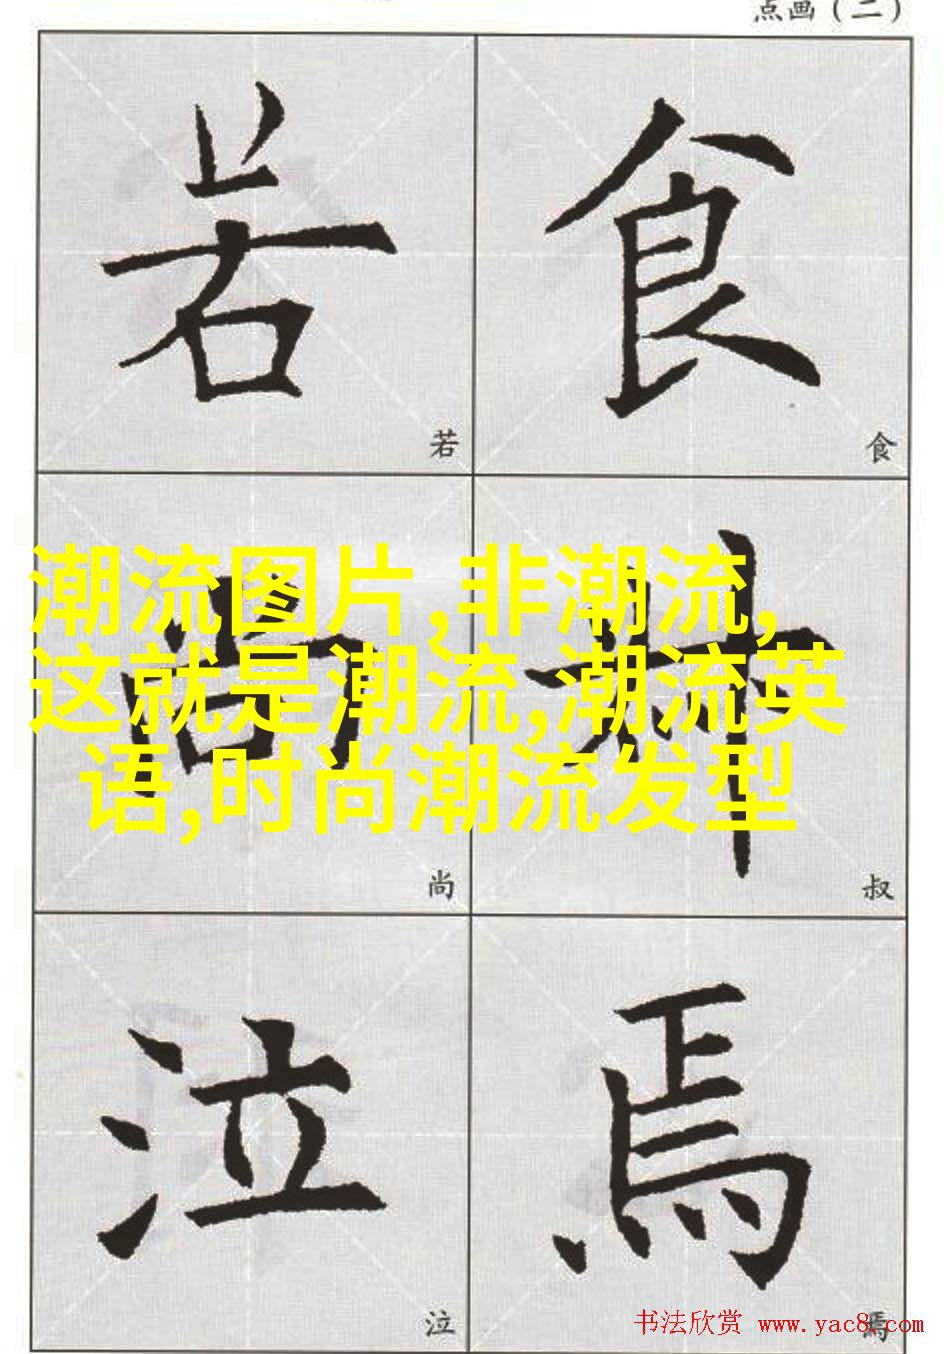 点画（二）
若 食
若 食
潮流图片,非潮流,
这就是潮流,潮流英
语,时尚潮流发型
尚 叔
尚 叔
泣 焉
泣 焉
书法欣赏 www.yac8.com